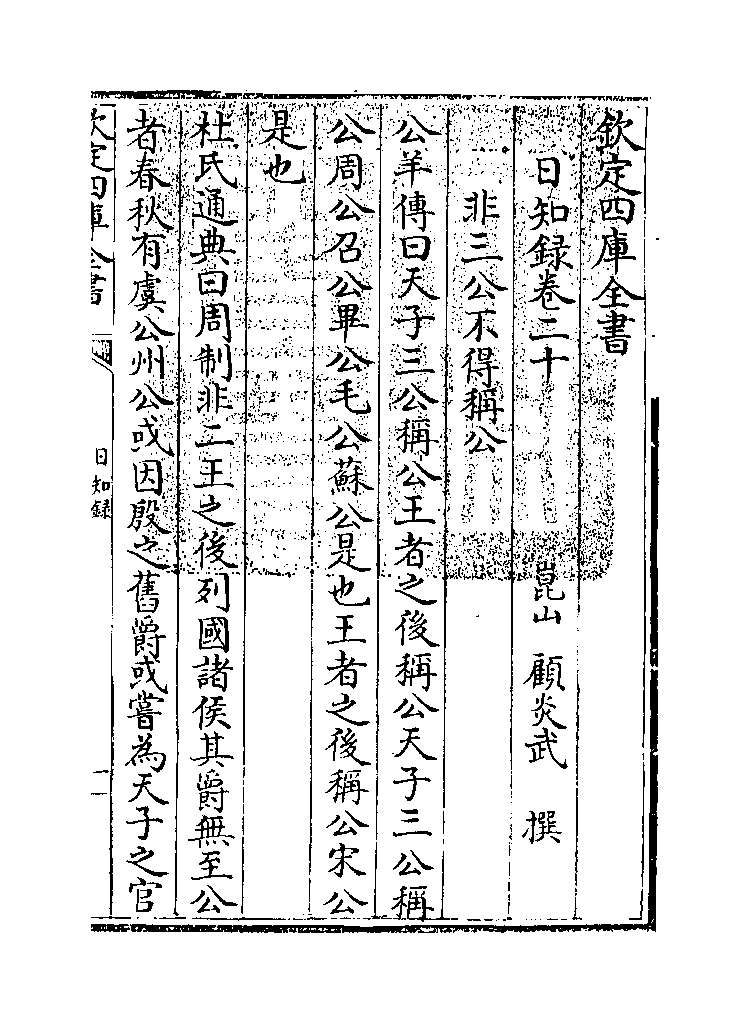 欽定四庫全書
日知録卷二十
崑山 顧炎武 撰
非三公不得稱公
公羊傳曰天子三公稱公王者之後稱公天子三公稱
公周公召公畢公毛公蘇公是也王者之後稱公宋公
是也
杜氏通典曰周制非二王之後列國諸侯其爵無至公
者春秋有虞公州公或因殷之舊爵或嘗為天子之官
欽定四庫全書
日知録
一